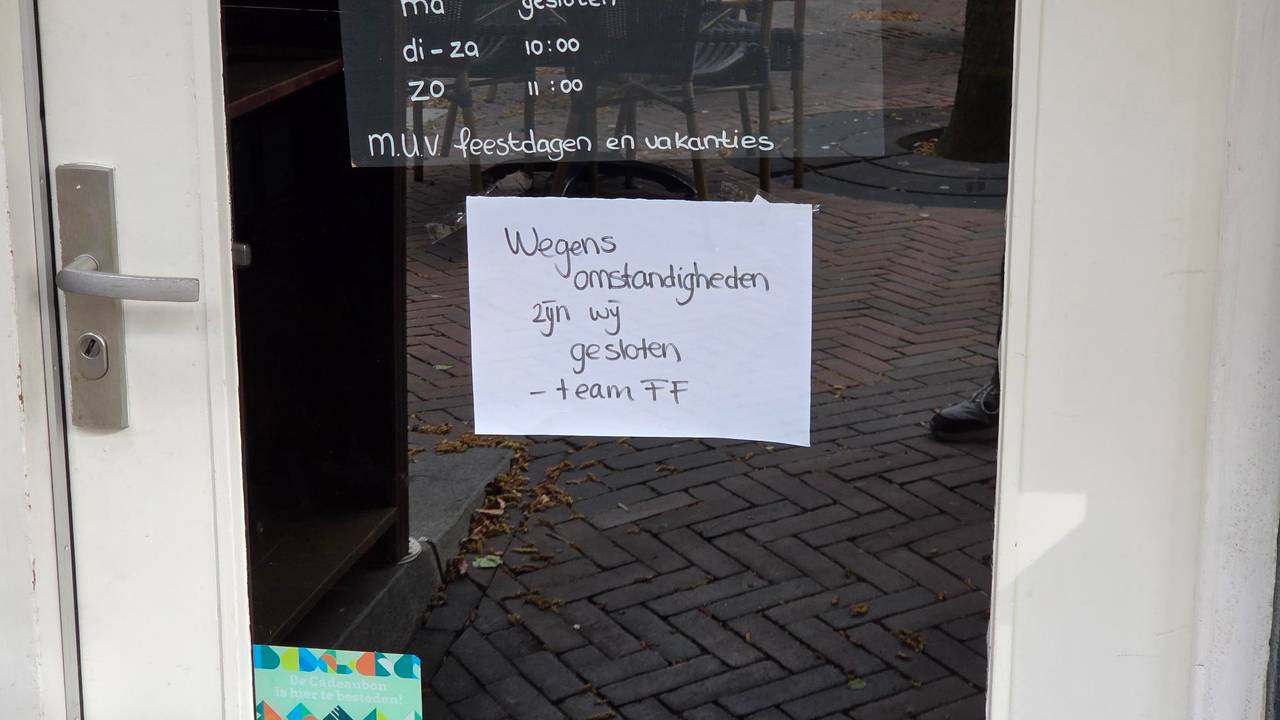 ma gesloten
di-za 10:00
zo 11:00
M.U.V feestdagen en vakanties
Wegens
omstandigheden
zijn wij
gesloten
- team FF
De Cadeaubon
is hier te besteden!